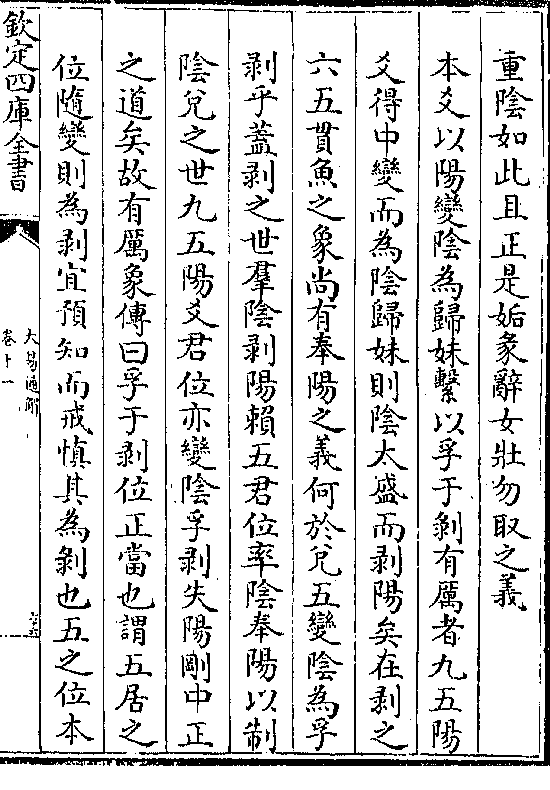 重陰如此且正是姤彖辭女壯勿取之義
本爻以陽變陰為歸妹繫以孚于剝有厲者九五陽
爻得中變而為陰歸妹則陰太盛而剥陽矣在剥之
六五貫魚之象尚有奉陽之義何於兌五變陰為孚
剥乎蓋剥之世羣陰剥陽賴五君位率陰奉陽以制
陰兌之世九五陽爻君位亦變陰孚剥失陽剛中正
之道矣故有厲象傳曰孚于剥位正當也謂五居之
位隨變則為剥宜預知而戒慎其為剝也五之位本
欽定四庫全書
大易通解
卷十一